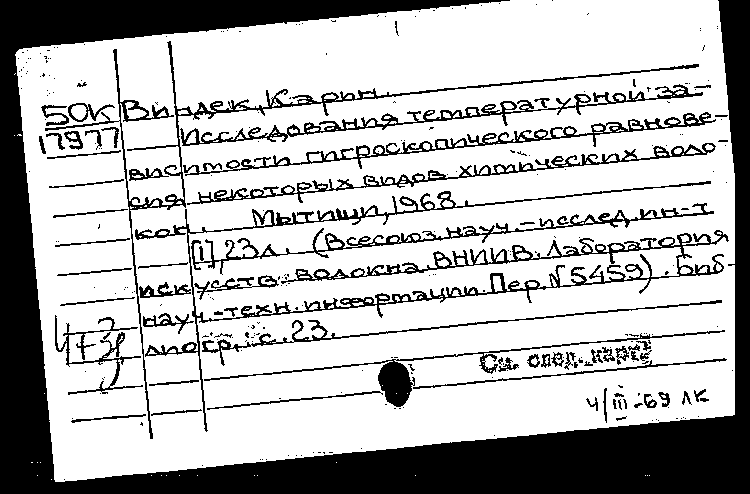 50К Виндек, Карин.
17977 Исследования температурной за-
висимости гигроскопического равнове-
сия некоторых видов химических воло-
кон. Мытищи, 1968.
[1], 23л. (Всесоюз. науч.-исслед. ин-т
искусств. волокна. ВНИИВ. Лаборатория
науч.-техн. информации. Пер. № 5459). Биб-
лиогр.: с. 23.
См. след. карт.
4/III-69 ЛК